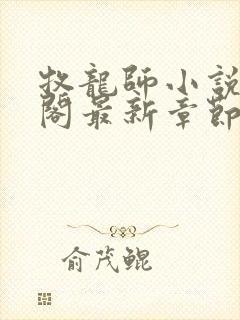 牧龍師小説
閣最新章節
俞茂鲲